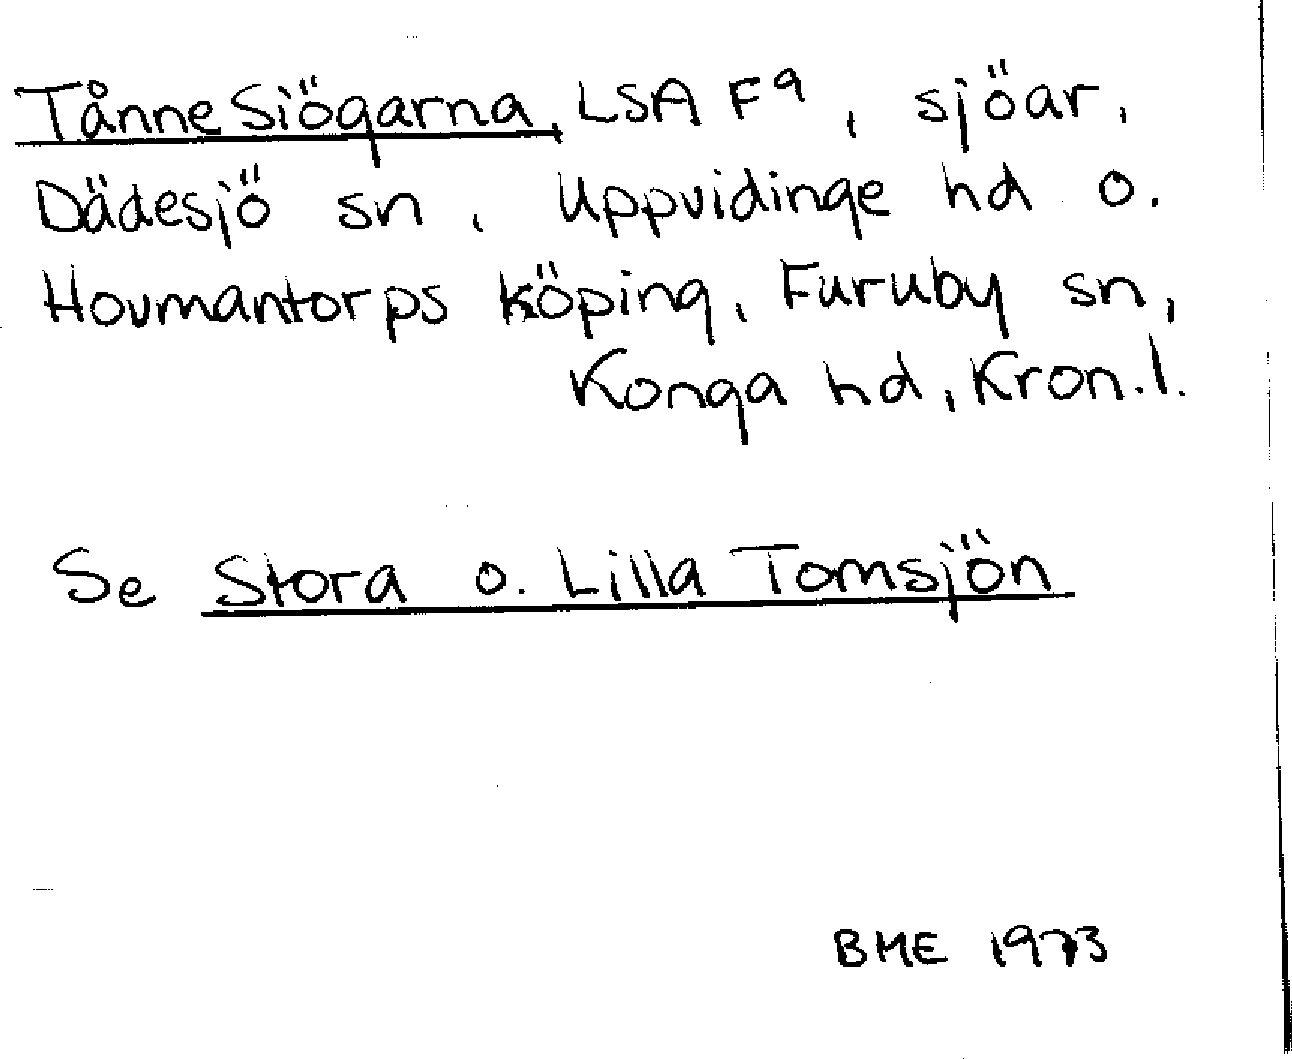 Tånne Siögarna, LSA F9, sjöar,
Dädesjö sn, Uppvidinge hd o.
Hovmantorps köping, Furuby sn,
Konga hd, Kron.l.
Se Stora o. Lilla Tomsjön
BME 1973